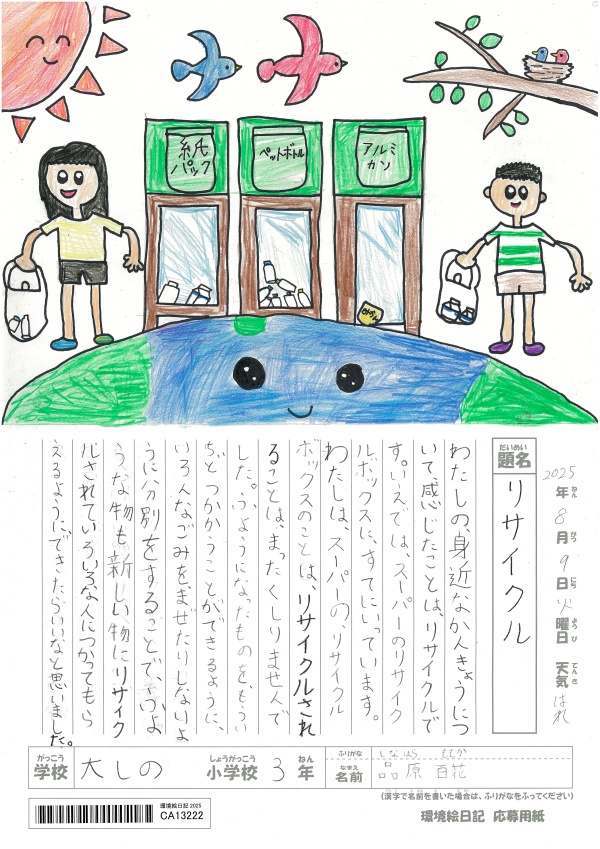 紙
パック
ペットボトル
アルミ
カン
2025年8月9日火曜日 天気 はれ
ねん がつ にち ようび てんき
だいめい
題名
リサイクル
わたしの、身近なかんきょうにつ
いて感じたことは、リサイクルで
す。いえでは、スーパーのリサイク
ルボックスに、すてにいっています。
わたしは、スーパーの、リサイクル
ボックスのことは、リサイクルされ
ることは、まったくしりませんで
した。ふようになったものを、もうい
ちどつかうことができるように、
いろんなごみをまぜたりしないよ
うに分別をすることで、ふよ
うな物も新しい物にリサイク
ルされていろいろな人につかってもら
えるように、できたらいいなと思いました。
がっこう しょうがっこう ねん
学校 大しの 小学校 3年
ふりがな しなはら ももか
なまえ
名前 品原 百花
(漢字で名前を書いた場合は、ふりがなをふってください)
環境絵日記 2025
CA13222
環境絵日記 応募用紙